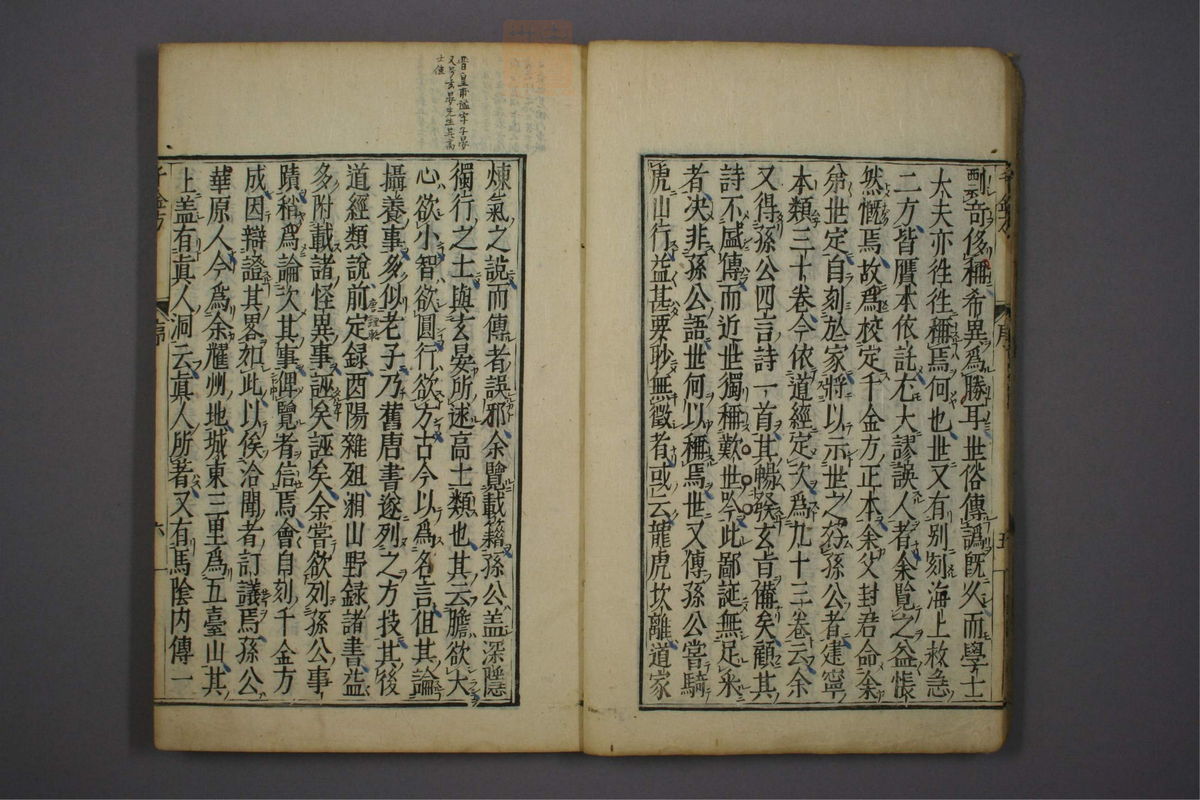 剽奇侈稱希異爲勝耳世俗傳譌既久而學士
大夫亦徃徃稱焉何也世又有别刻海上救急
二方皆贋本依託尤大謬誤人者余覽之益悵
然慨焉故爲校定千金方正本余父封君命余
弟世定自刻於家將以示世之好孫公者建寧
本類三十卷今依道經定次爲九十三卷云余
又得孫公四言詩一首其暢發玄旨備矣顧其
詩不盛傳而近世獨稱歎世吟此鄙誕無足采
者决非孫公語世何以稱焉世又傳孫公嘗騎
虎山行益甚要眇無徵者或云龍虎坎離道家
五
煉氣之説而傳者誤邪余覽載籍孫公盖深隱
獨行之士與玄晏所述高士類也其云膽欲大
心欲小智欲圓行欲方古今以爲名言但其論
攝養事多似老子乃舊唐書遂列之方技其後
道經類説前定録酉陽雜俎湘山野録諸書益
多附載諸怪異事誣矣誣矣余嘗欲列孫公事
蹟稍爲論次其事俾覽者信焉會自刻千金方
成因辯證其畧如此以俟洽聞者訂議焉孫公
華原人今爲余耀州地城東三里爲五臺山其
上盖有眞人洞云眞人所著又有馬陰内傳一
千金方
序
六